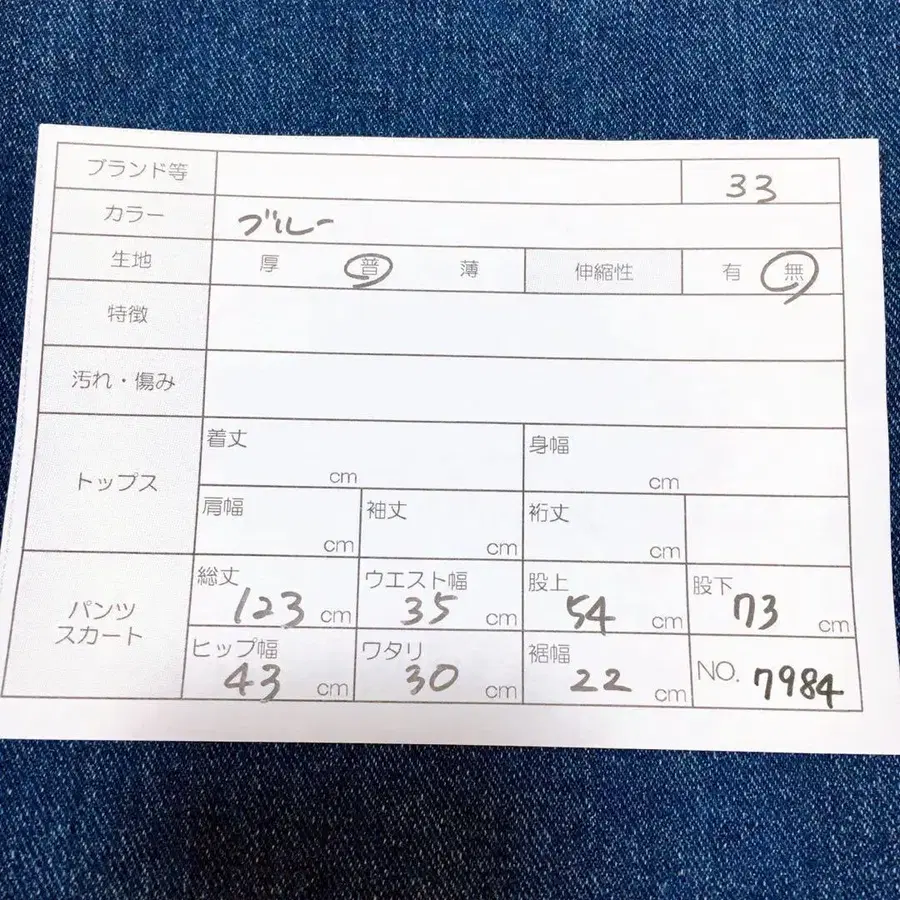 ブランド等 33
カラー ブルー
生地 厚 普 薄 伸縮性 有 無
特徴
汚れ・傷み
トップス
着丈 cm 身幅 cm
肩幅 cm 袖丈 cm 裄丈 cm
パンツ
スカート
総丈 123 cm ウエスト幅 35 cm 股上 54 cm 股下 73 cm
ヒップ幅 43 cm ワタリ 30 cm 裾幅 22 cm NO. 7984